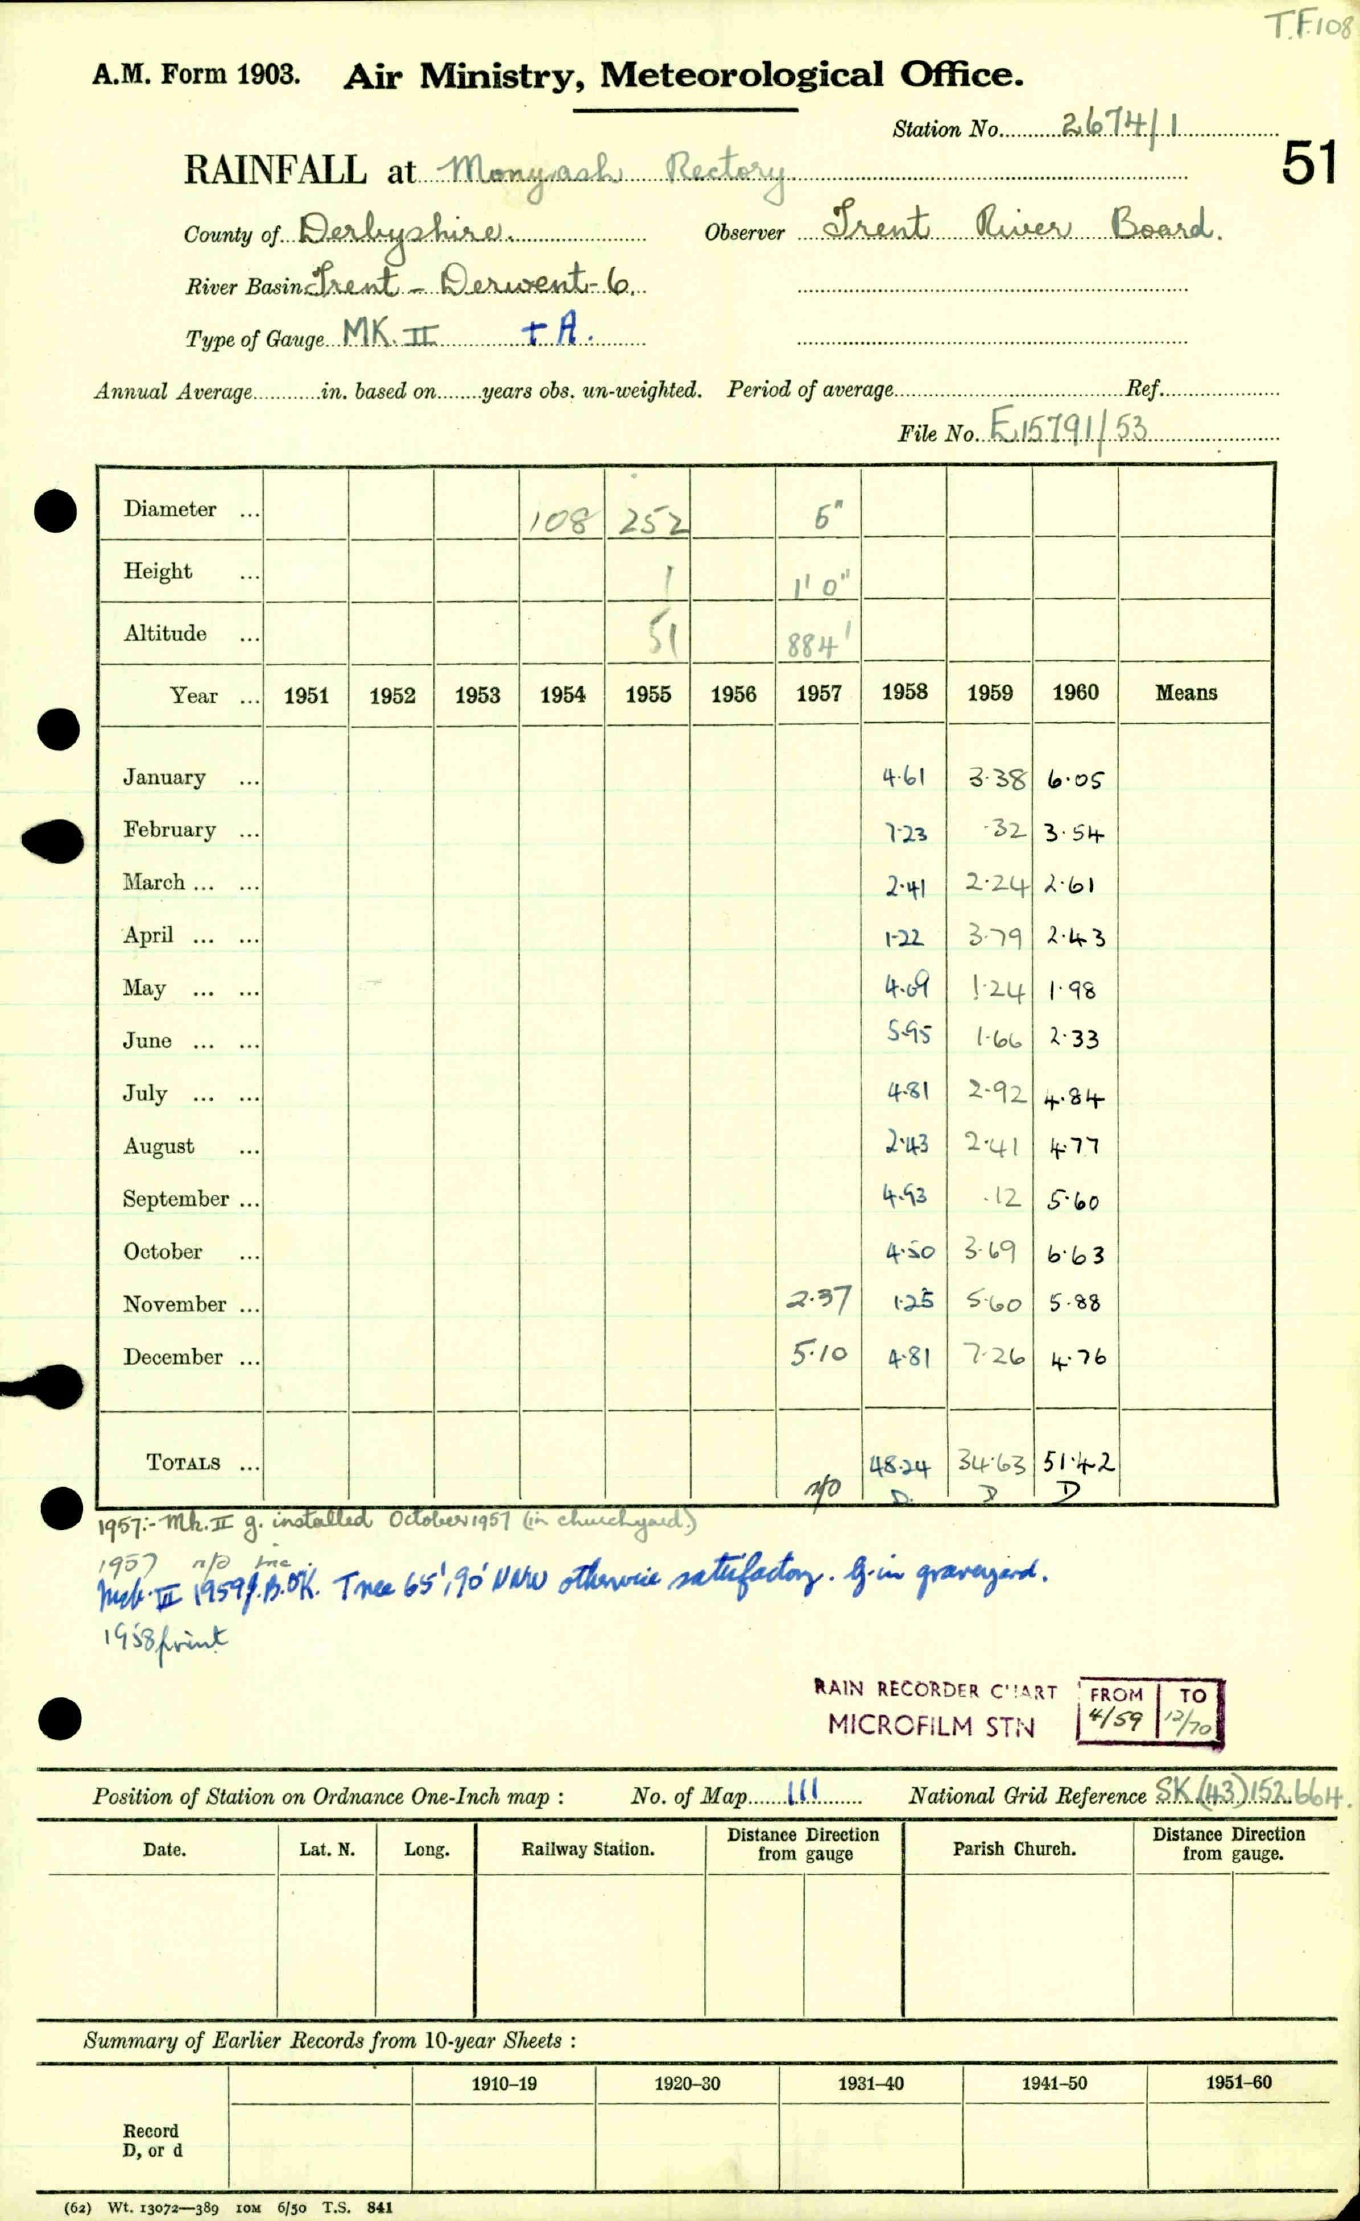 T.F.108
A.M. Form 1903. Air Ministry, Meteorological Office.
Station No. 2674/1
51
RAINFALL at Monyash Rectory
County of Derbyshire. Observer Trent River Board.
River Basin Trent - Derwent - 6.
Type of Gauge MK. II + A.
Annual Average............in. based on........years obs. un-weighted. Period of average.................... Ref....................
File No. E15791/53
Diameter ... 108 252 5"
Height ... 1 1' 0"
Altitude ... 51 884'
Year ... 1951 1952 1953 1954 1955 1956 1957 1958 1959 1960 Means
January ... 4.61 3.38 6.05
February ... 7.23 .32 3.54
March ... ... 2.41 2.24 2.61
April ... ... 1.22 3.79 2.43
May ... ... 4.09 1.24 1.98
June ... ... 5.95 1.66 2.33
July ... ... 4.81 2.92 4.84
August ... 2.43 2.41 4.77
September ... 4.93 .12 5.60
October ... 4.50 3.69 6.63
November ... 2.37 1.25 5.60 5.88
December ... 5.10 4.81 7.26 4.76
TOTALS ... 48.24 34.63 51.42
n/o D. D D
1957:- Mk. II g. installed October 1957 (in churchyard.)
1957 n/o inc.
Mk. II 1959 J.B. OK. Tree 65', 90' NNW otherwise satisfactory. G. in graveyard.
1958 print
RAIN RECORDER CHART FROM TO
MICROFILM STN 4/59 12/70
Position of Station on Ordnance One-Inch map : No. of Map 111 National Grid Reference SK (43) 152.664.
Date. Lat. N. Long. Railway Station. Distance Direction from gauge Parish Church. Distance Direction from gauge.
Summary of Earlier Records from 10-year Sheets :
1910–19 1920–30 1931–40 1941–50 1951–60
Record
D, or d
(62) Wt. 13072—389 10M 6/50 T.S. 841